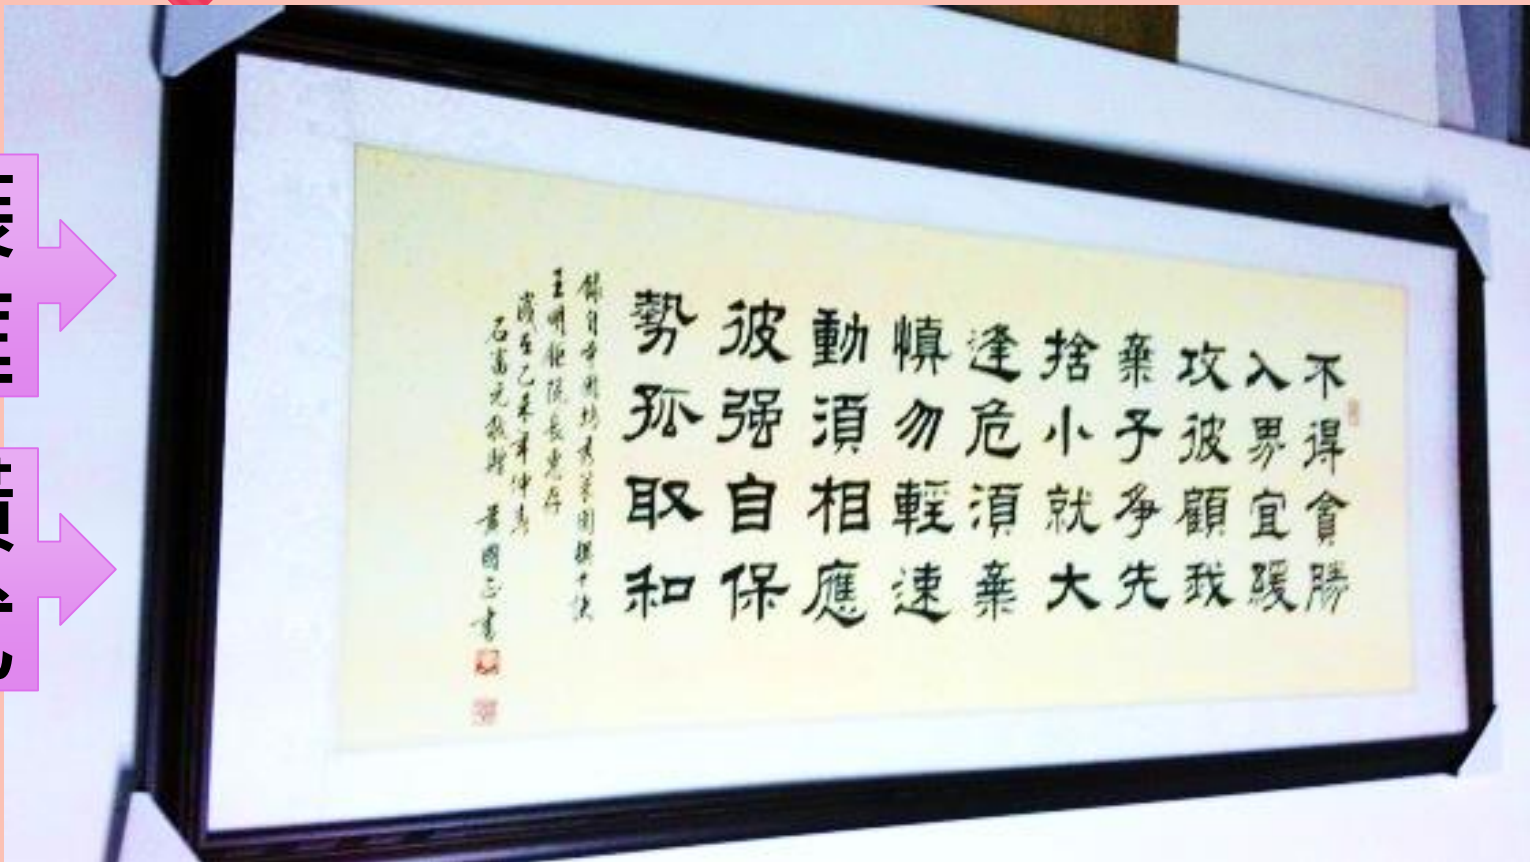 不得貪勝
入界宜緩
攻彼顧我
棄子爭先
捨小就大
逢危須棄
慎勿輕速
動須相應
彼强自保
勢孤取和
錄自
王明鉅院長惠存
歲在乙未年仲春
石富元敬贈 國正書